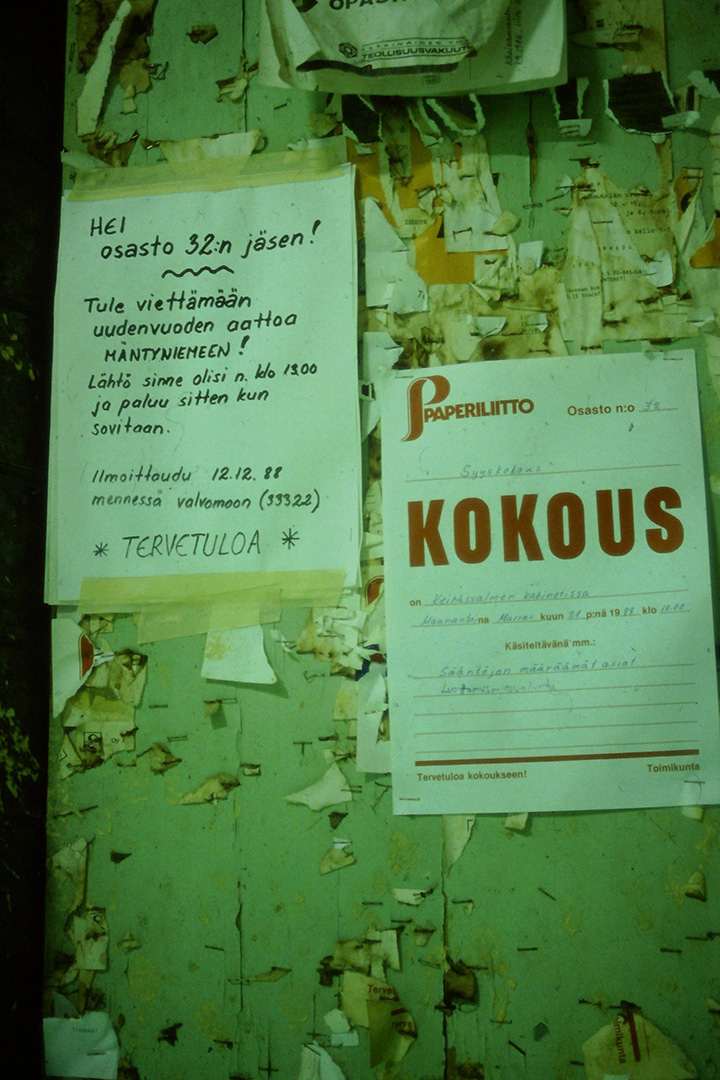 TEOLLISUUSVAKUUT
HEI
osasto 32:n jäsen!
Tule viettämään
uudenvuoden aattoa
MÄNTYNIEMEEN!
Lähtö sinne olisi n. klo 13.00
ja paluu sitten kun
sovitaan.
Ilmoittaudu 12.12.88
mennessä valvomoon (33322)
* TERVETULOA *
PAPERILIITTO
Osasto n:o 32
Syyskokous
KOKOUS
on Keitässalmen kabinetissa
Maanantaina Marras kuun 28 p:nä 1988 klo 18.00
Käsiteltävänä mm.:
Sääntöjen määräämät asiat
Luottamusmiesvaliokunta
Tervetuloa kokoukseen!
Toimikunta
Terve
Toimikunta